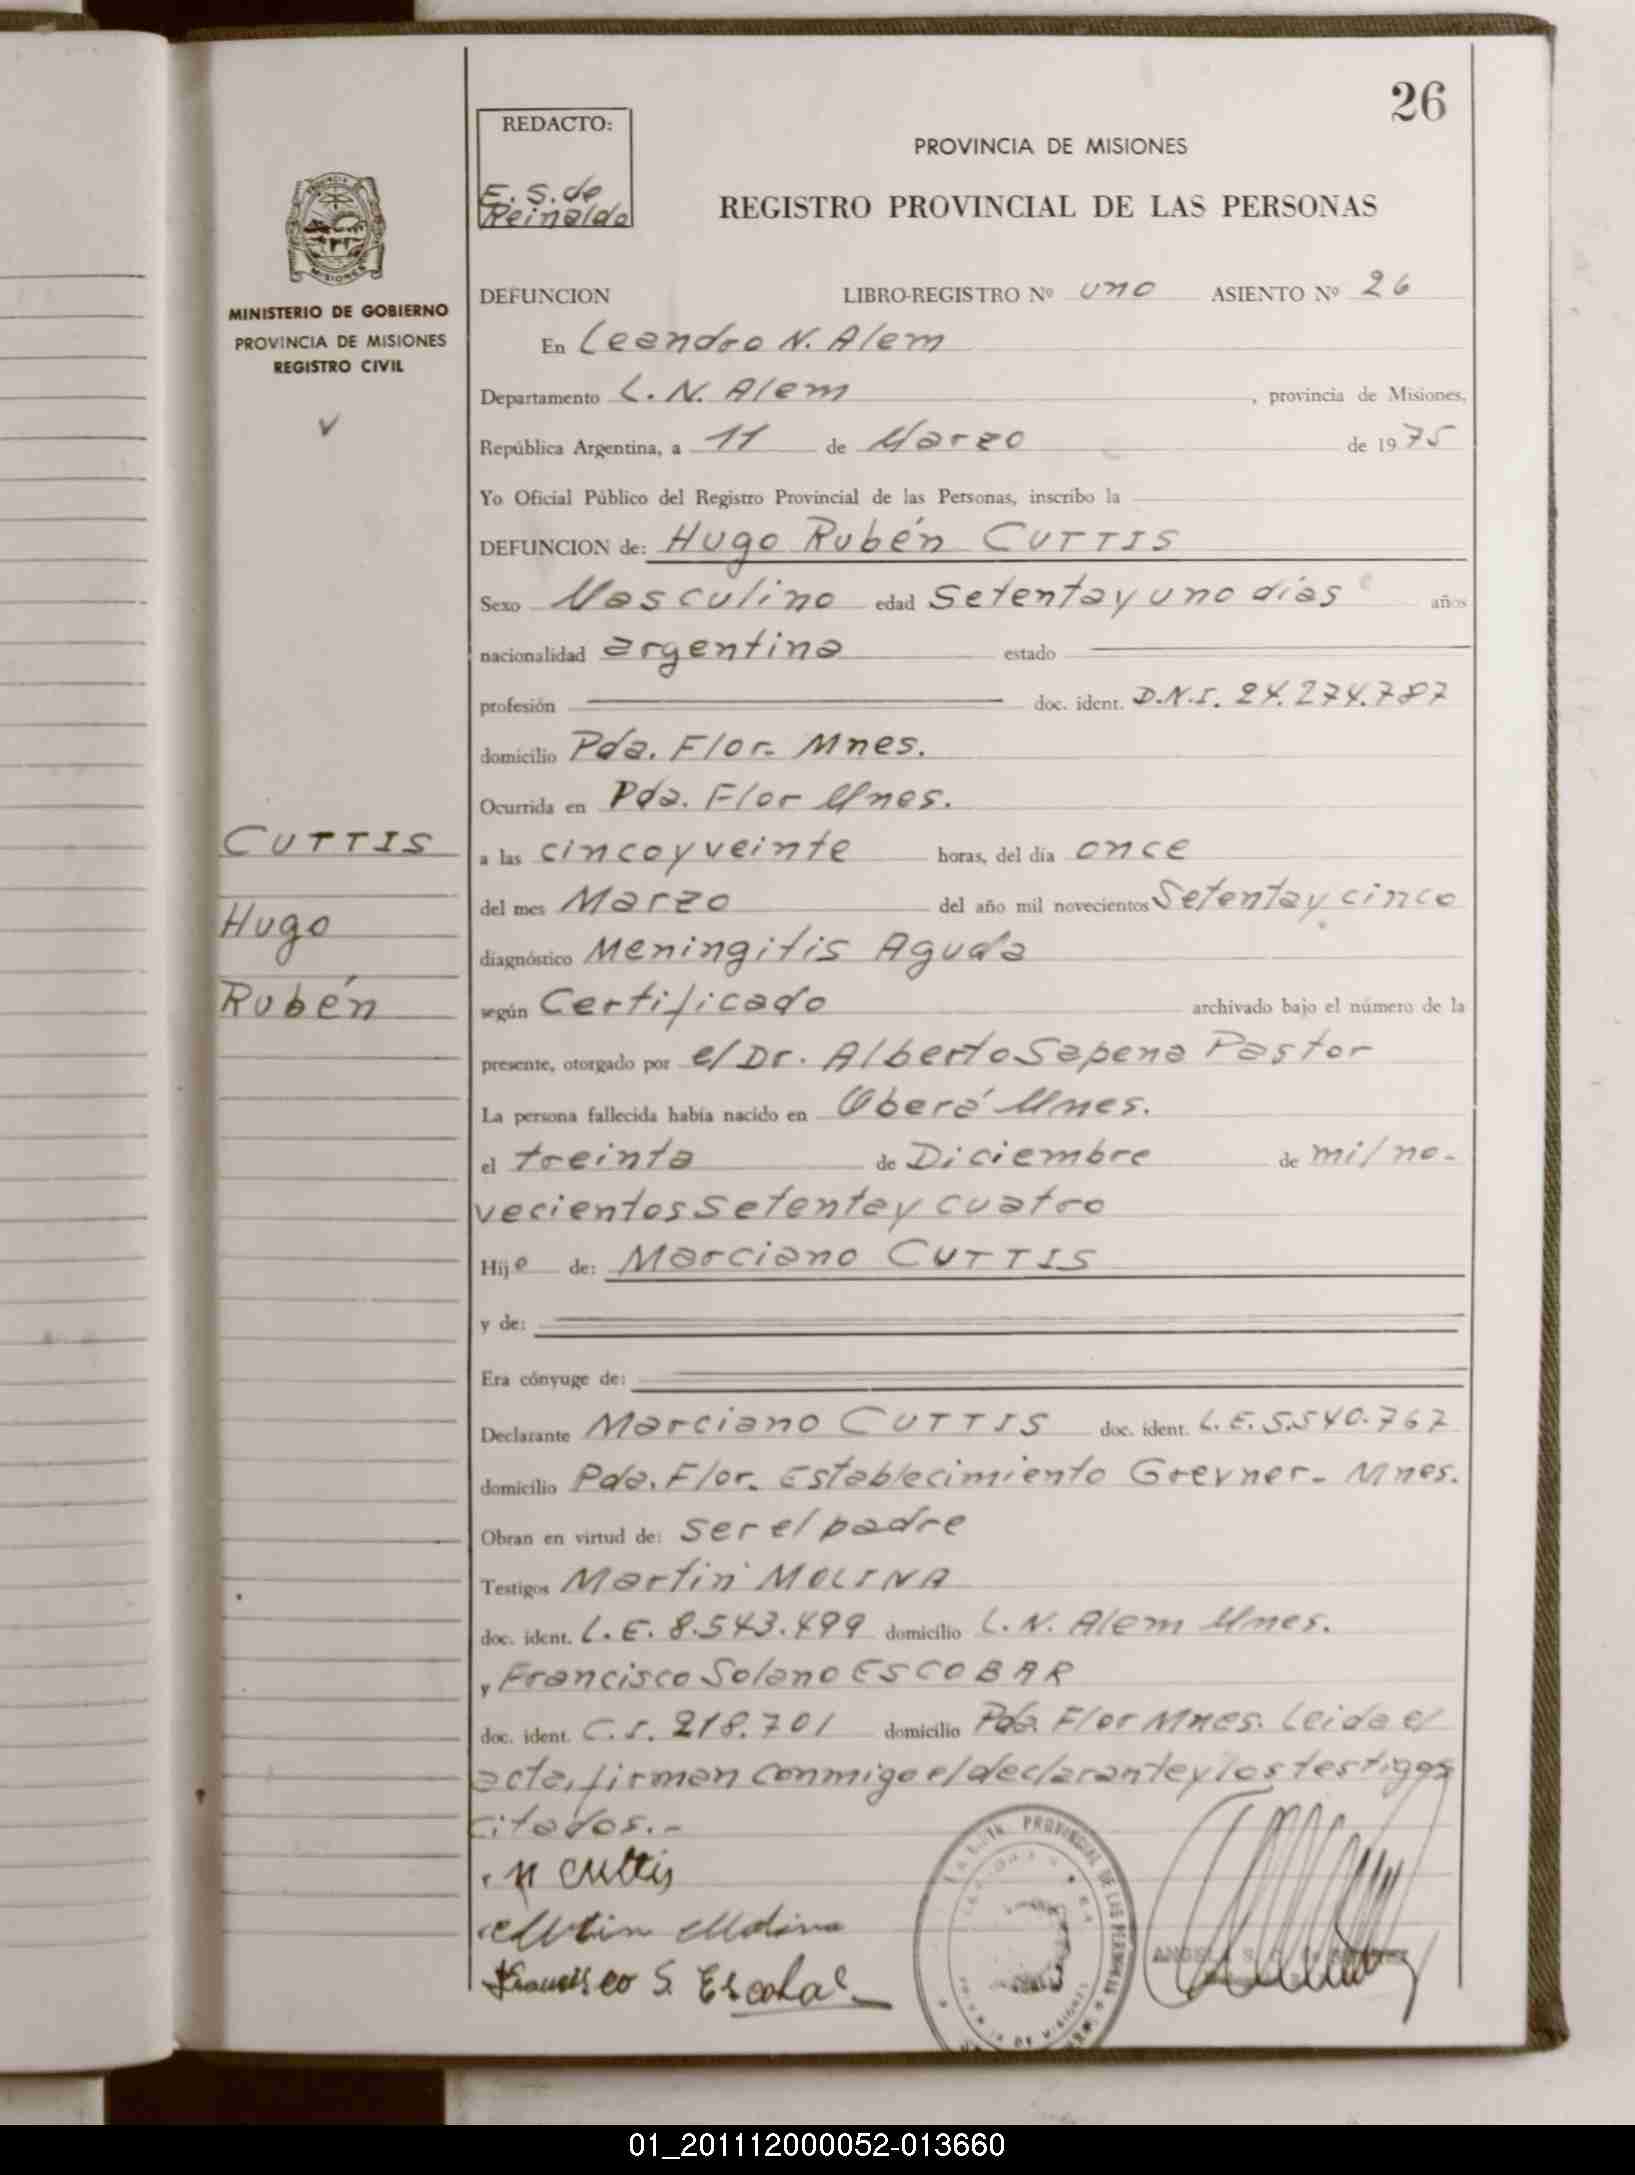 26
REDACTO:
E. S. de
Reinaldo
PROVINCIA DE MISIONES
REGISTRO PROVINCIAL DE LAS PERSONAS
MINISTERIO DE GOBIERNO
PROVINCIA DE MISIONES
REGISTRO CIVIL
DEFUNCION LIBRO-REGISTRO Nº uno ASIENTO Nº 26
En Leandro N. Alem
Departamento L. N. Alem, provincia de Misiones,
República Argentina, a 11 de Marzo de 1975
Yo Oficial Público del Registro Provincial de las Personas, inscribo la
DEFUNCION de: Hugo Rubén CUTTIS
Sexo Masculino edad Setenta y uno días años
nacionalidad argentina estado
profesión doc. ident. D.N.I. 24.274.787
domicilio Pda. Flor. Mnes.
Ocurrida en Pda. Flor Mnes.
CUTTIS
Hugo
Rubén
a las cinco y veinte horas, del día once
del mes Marzo del año mil novecientos Setenta y cinco
diagnóstico Meningitis Aguda
según Certificado archivado bajo el número de la
presente, otorgado por el Dr. Alberto Sapena Pastor
La persona fallecida había nacido en Oberá Mnes.
el treinta de Diciembre de mil no-
vecientos Setenta y cuatro
Hijo de: Marciano CUTTIS
y de:
Era cónyuge de:
Declarante Marciano CUTTIS doc. ident. L.E. 5.540.767
domicilio Pda. Flor. Establecimiento Grevner- Mnes.
Obran en virtud de: ser el padre
Testigos Martin MOLINA
doc. ident. L.E. 8.543.499 domicilio L. N. Alem Mnes.
y Francisco Solano ESCOBAR
doc. ident. C.I. 218.701 domicilio Pda. Flor Mnes. Leida el
acta, firman conmigo el declarante y los testigos
citados.-
M Cuttis
Martin Molina
Francisco S. Escobar
PROVINCIAL DE LAS PERSONAS
01_201112000052-013660